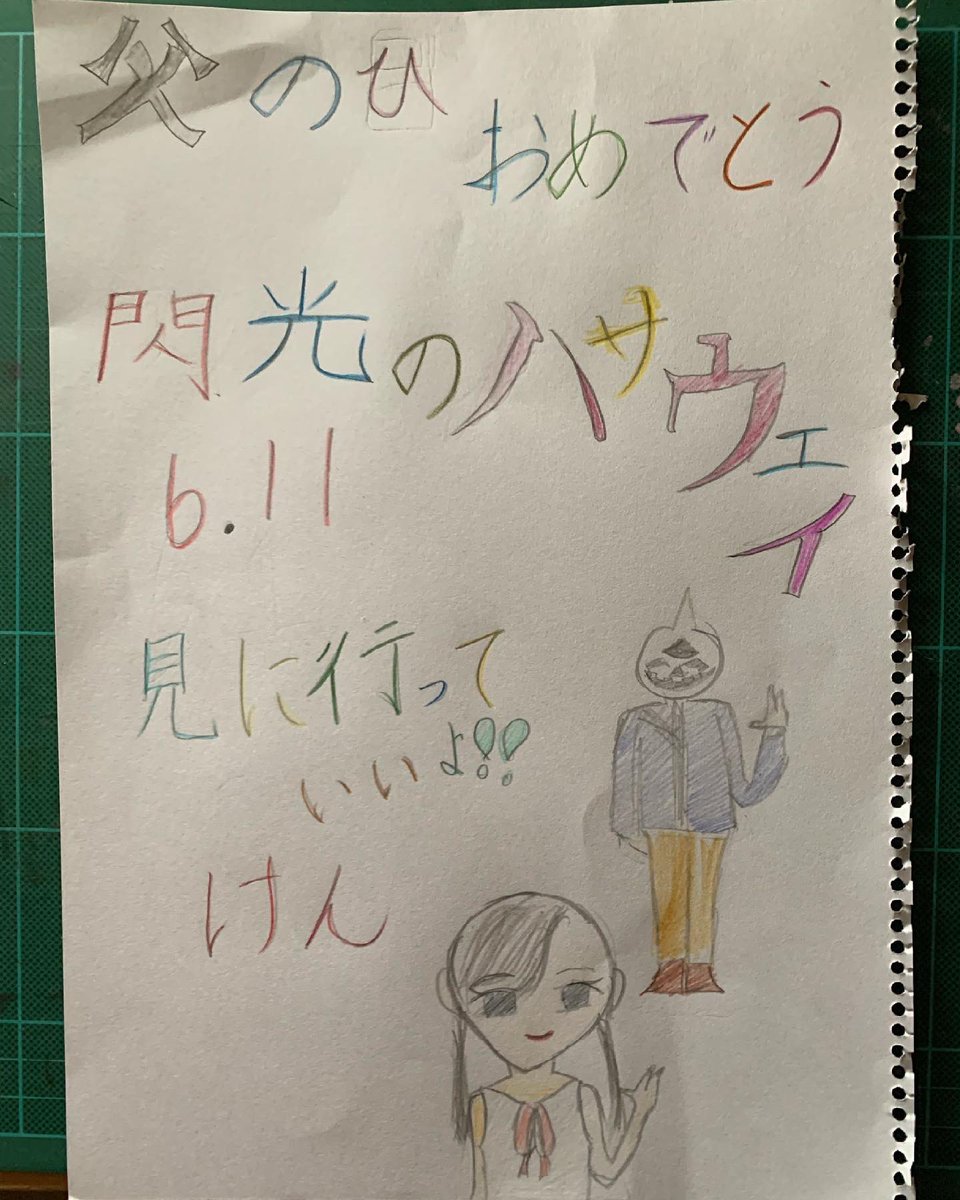 父のひ
おめでとう
閃光のハサウェイ
6.11
見に行って
いいよ!!
けん